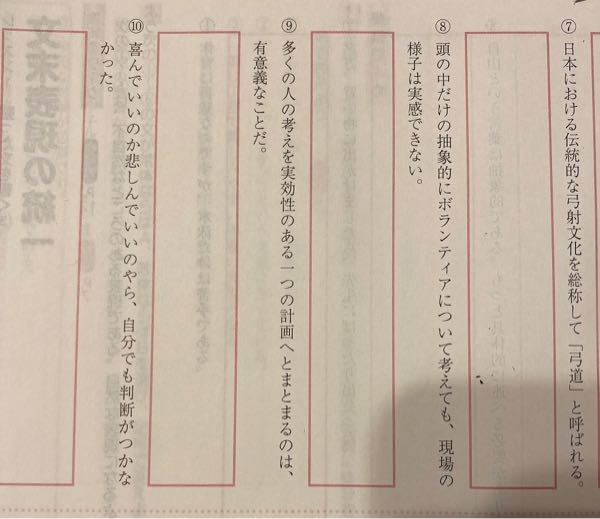 ⑦ 日本における伝統的な弓射文化を総称して「弓道」と呼ばれる。
⑧ 頭の中だけの抽象的にボランティアについて考えても、現場の
様子は実感できない。
⑨ 多くの人の考えを実効性のある一つの計画へとまとまるのは、
有意義なことだ。
⑩ 喜んでいいのか悲しんでいいのやら、自分でも判断がつかな
かった。